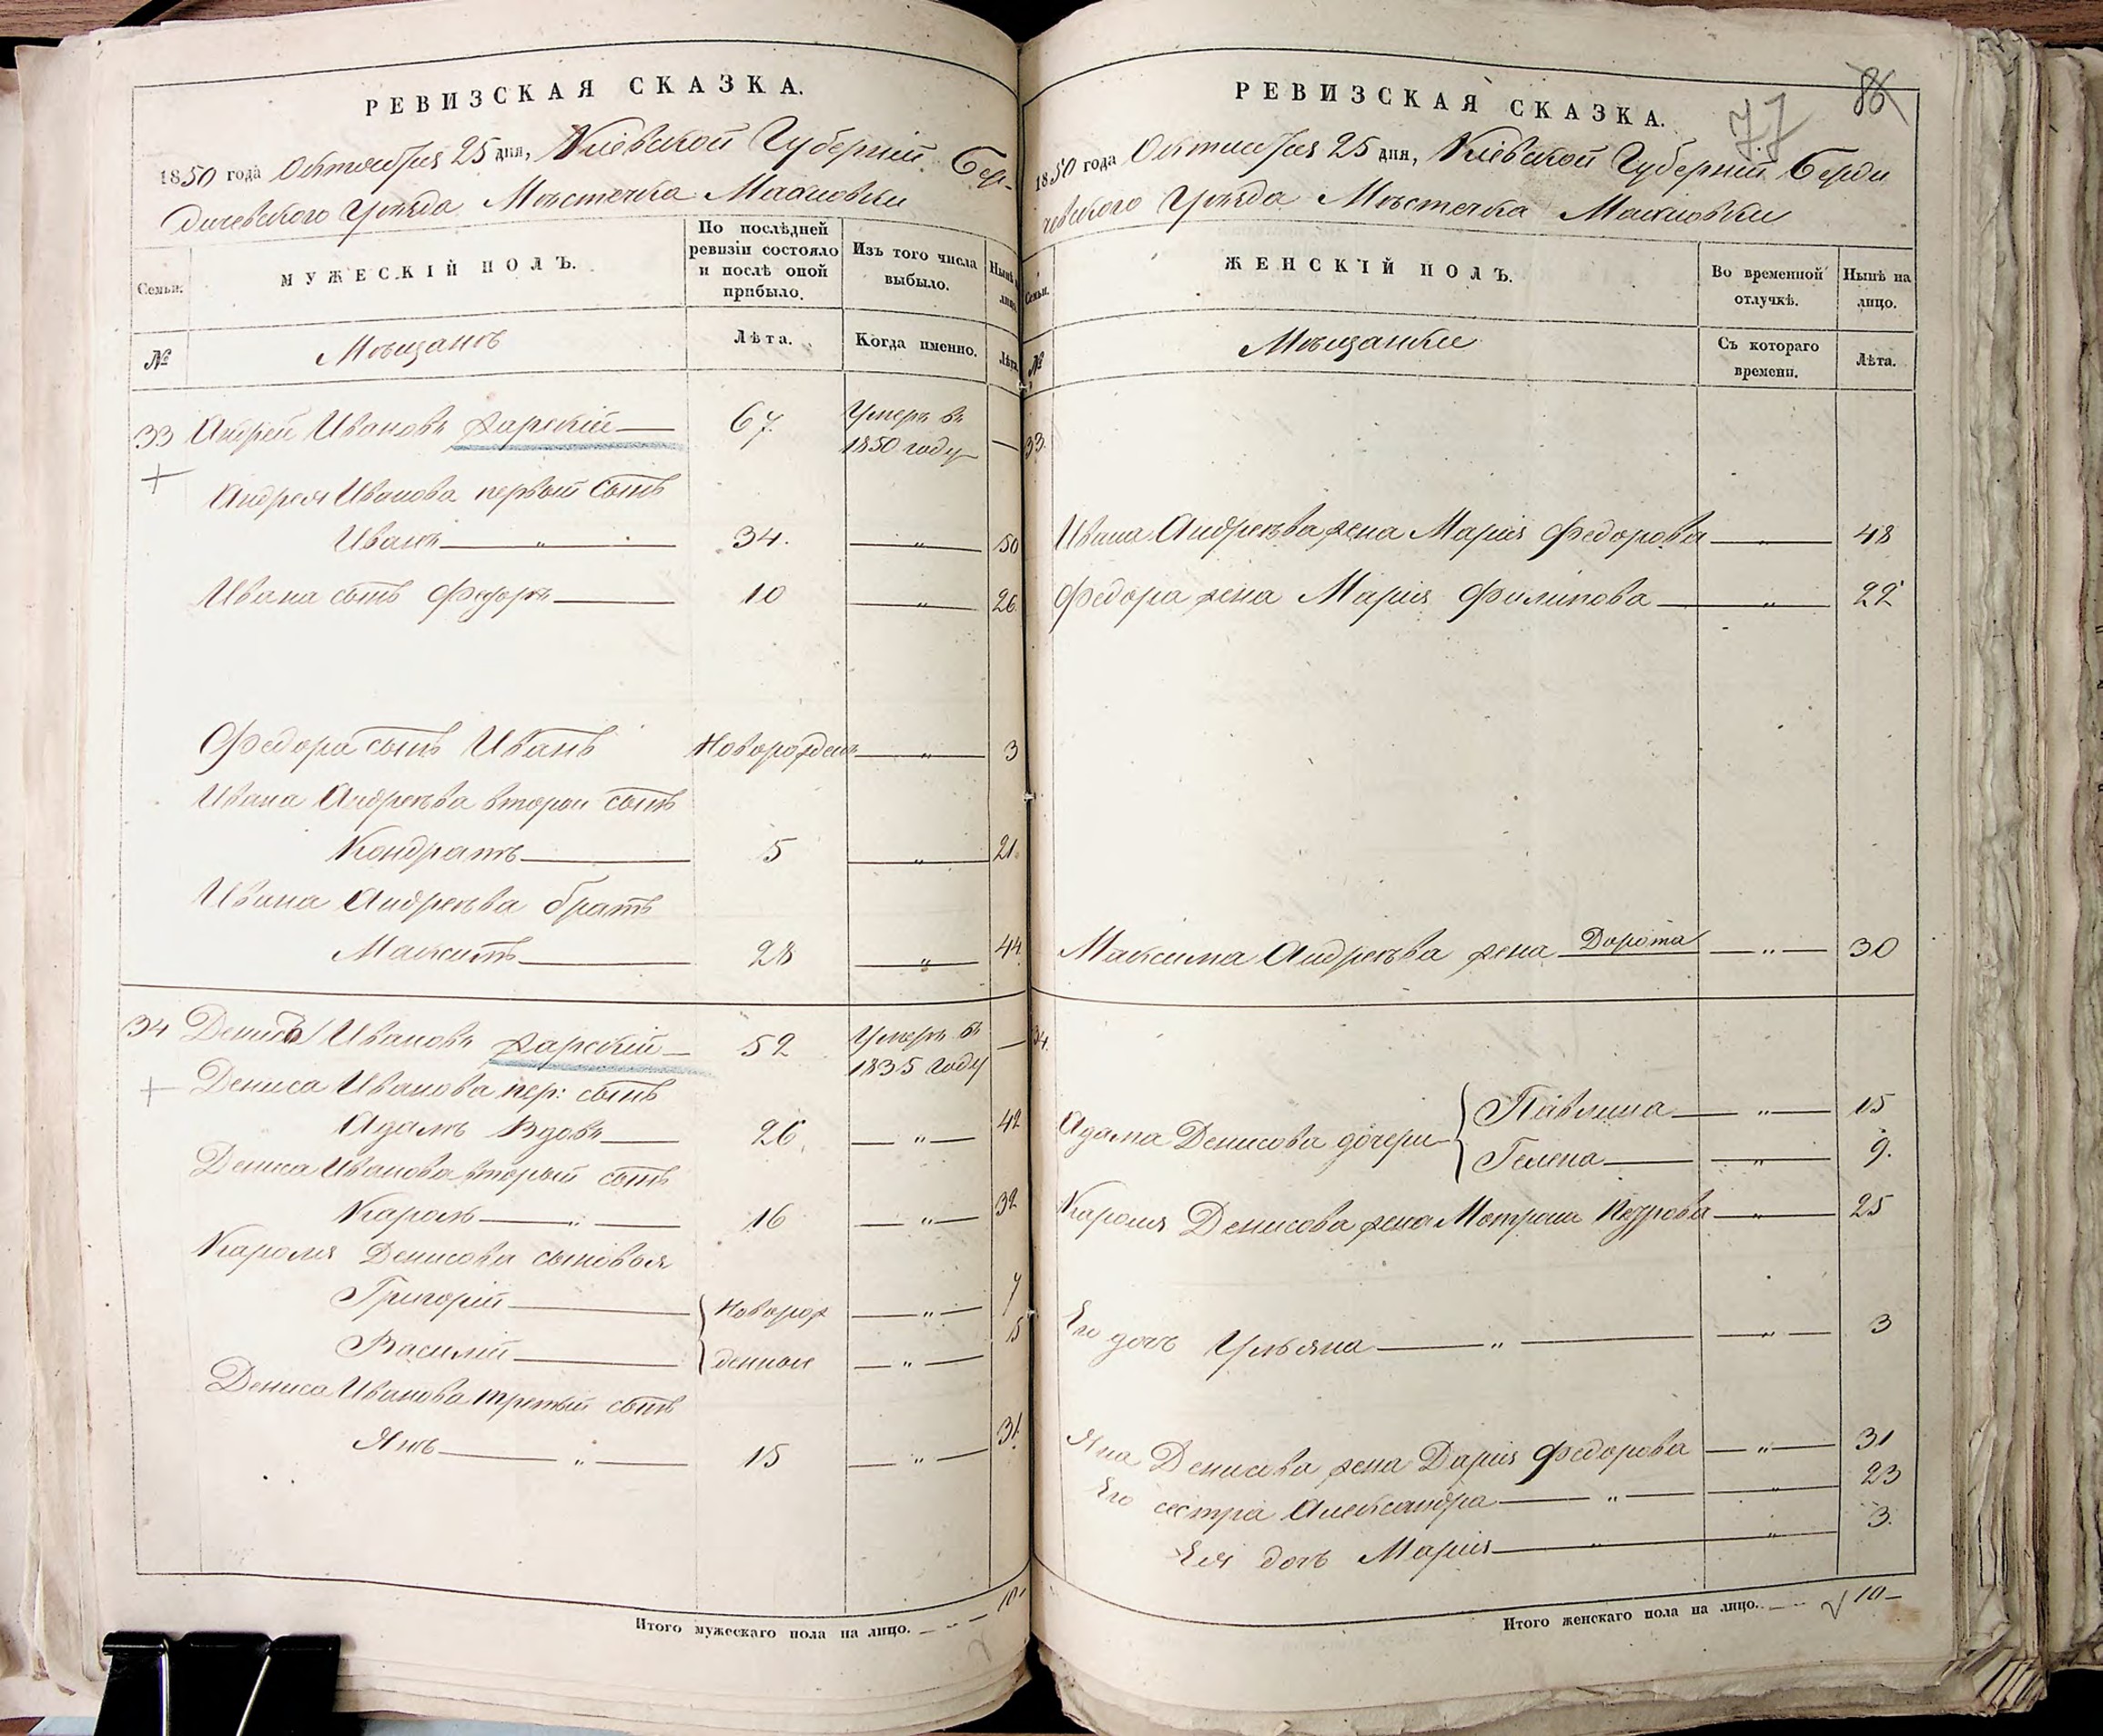 РЕВИЗСКАЯ СКАЗКА.
1850 года Октября 25 дня, Кіевской Губерніи Бер-
дичевского Уѣзда Мѣстечка Махновки
Семьи.
МУЖЕСКІЙ ПОЛЪ.
По послѣдней ревизіи состояло и послѣ оной прибыло.
Изъ того числа выбыло.
Нынѣ на лицо.
№
Мѣщанъ
Лѣта.
Когда именно.
Лѣта.
33 Андрей Ивановъ Жарскій 67. Умеръ въ
1850 году —
Андрея Иванова первый сынъ
Иванъ 34. „ 50
Ивана сынъ Федоръ 10 „ 26
Федора сынъ Иванъ Новорожденъ „ 3
Ивана Андреева второй сынъ
Кондратъ 5 „ 21
Ивана Андреева братъ
Максимъ 28 „ 44
34 Денисъ Ивановъ Жарскій 52 Умеръ въ —
1835 году
Дениса Иванова пер: сынъ
Адамъ Вдовъ 26. „ 42
Дениса Иванова вторый сынъ
Кароль „ 16 „ 32
Кароля Денисова сыновья
Григорій { Новорож „ 7
Василій { денные „ 5
Дениса Иванова третый сынъ
Янъ „ 15 „ 31
Итого мужескаго пола на лицо. 10
77 86
РЕВИЗСКАЯ СКАЗКА.
1850 года Октября 25 дня, Кіевской Губерніи Берди
чевского Уѣзда Мѣстечка Махновки
Семьи.
ЖЕНСКІЙ ПОЛЪ.
Во временной отлучкѣ.
Нынѣ на лицо.
№
Мѣщанки
Съ котораго времени.
Лѣта.
33.
Ивана Андреева жена Марія Федорова „ 48
Федора жена Марія Филипова „ 22
Максима Андреева жена Дорота „ 30
34.
Адама Денисова дочери { Павлина „ 15
Гелена „ 9.
Кароля Денисова жена Мотрона Петрова „ 25
Его дочь Ульяна „ „ 3
Яна Денисова жена Дарія Федорова „ 31
Его сестра Александра „ „ 23
Ея дочь Марія „ „ 3.
Итого женскаго пола на лицо. 10